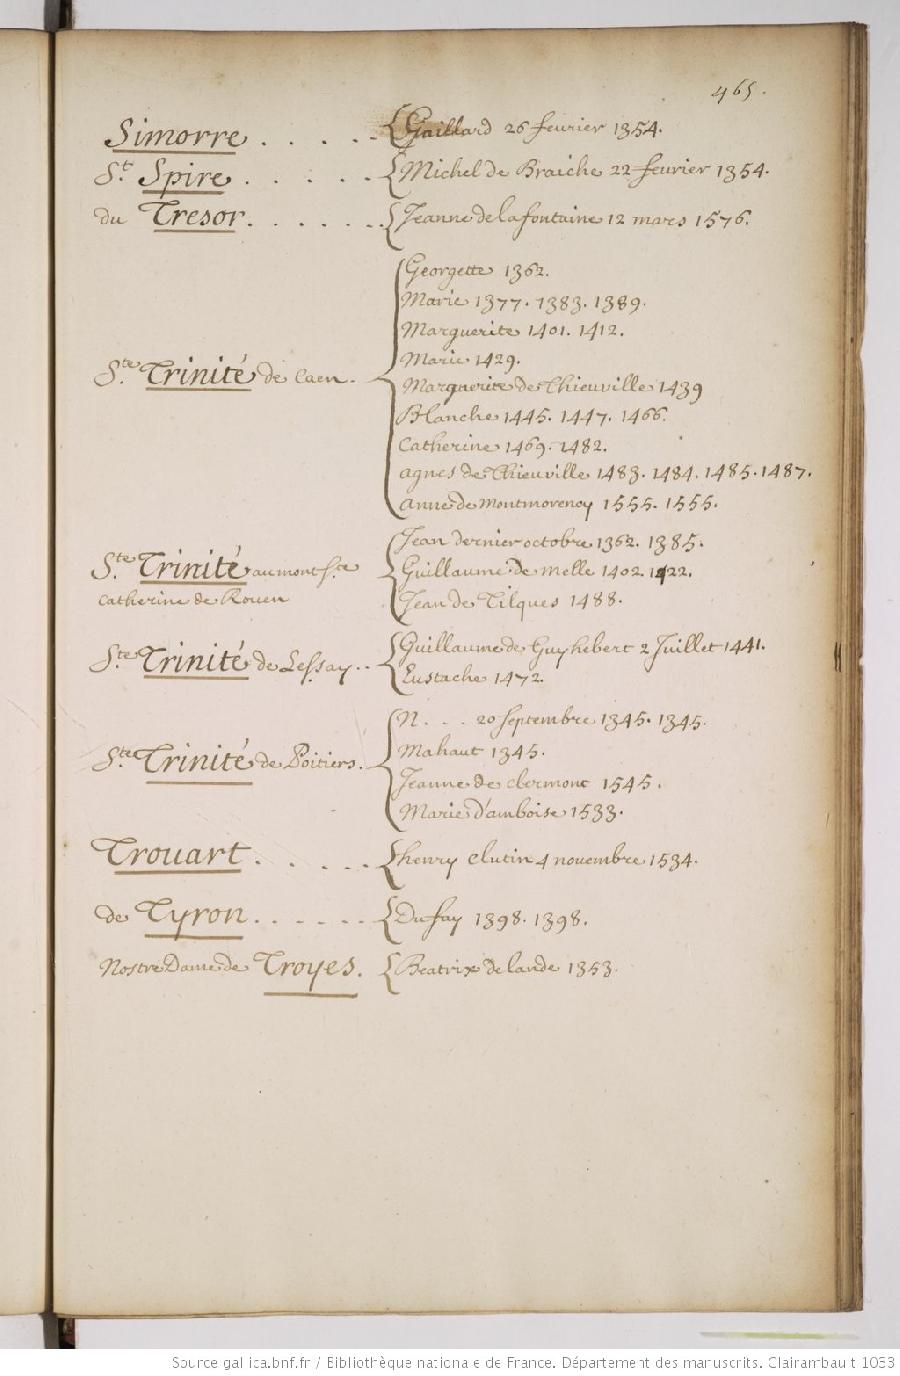 465.
Simorre . . . . . {Gaillard 26 feurier 1354.
S.t Spire . . . . . {Michel de Braiche 22 feurier 1354.
du Tresor . . . . . . {Jeanne de la fontaine 12 mars 1576.
{Georgette 1362.
Marie 1377. 1383. 1389.
Marguerite 1401. 1412.
Marie 1429.
S.te Trinité de Caen.
Marguerite de Thieuville 1439
Blanche 1445. 1447. 1466.
Catherine 1469. 1482.
agnes de Thieuville 1483. 1484. 1485. 1487.
anne de Montmorency 1555. 1555.
{Jean dernier octobre 1362. 1385.
S.te Trinité au mont S.te Guillaume de Melle 1402. 1422.
Catherine de Rouen Jean de Tilques 1488.
{Guillaume de Guyhebert 2 Juillet 1441.
S.te Trinité de Lessay . .
Eustache 1472.
{N. . . . 20 septembre 1345. 1345.
Mahaut 1345.
S.te Trinité de Poitiers.
Jeanne de clermont 1545.
Marie d'amboise 1533.
Trouart . . . . . {henry clutin 4 novembre 1534.
de Tyron . . . . . . {Dufay 1398. 1398.
Nostre Dame de Troyes. {Beatrix de lande 1353.
Source gallica.bnf.fr / Bibliothèque nationale de France. Département des manuscrits. Clairambault 1033